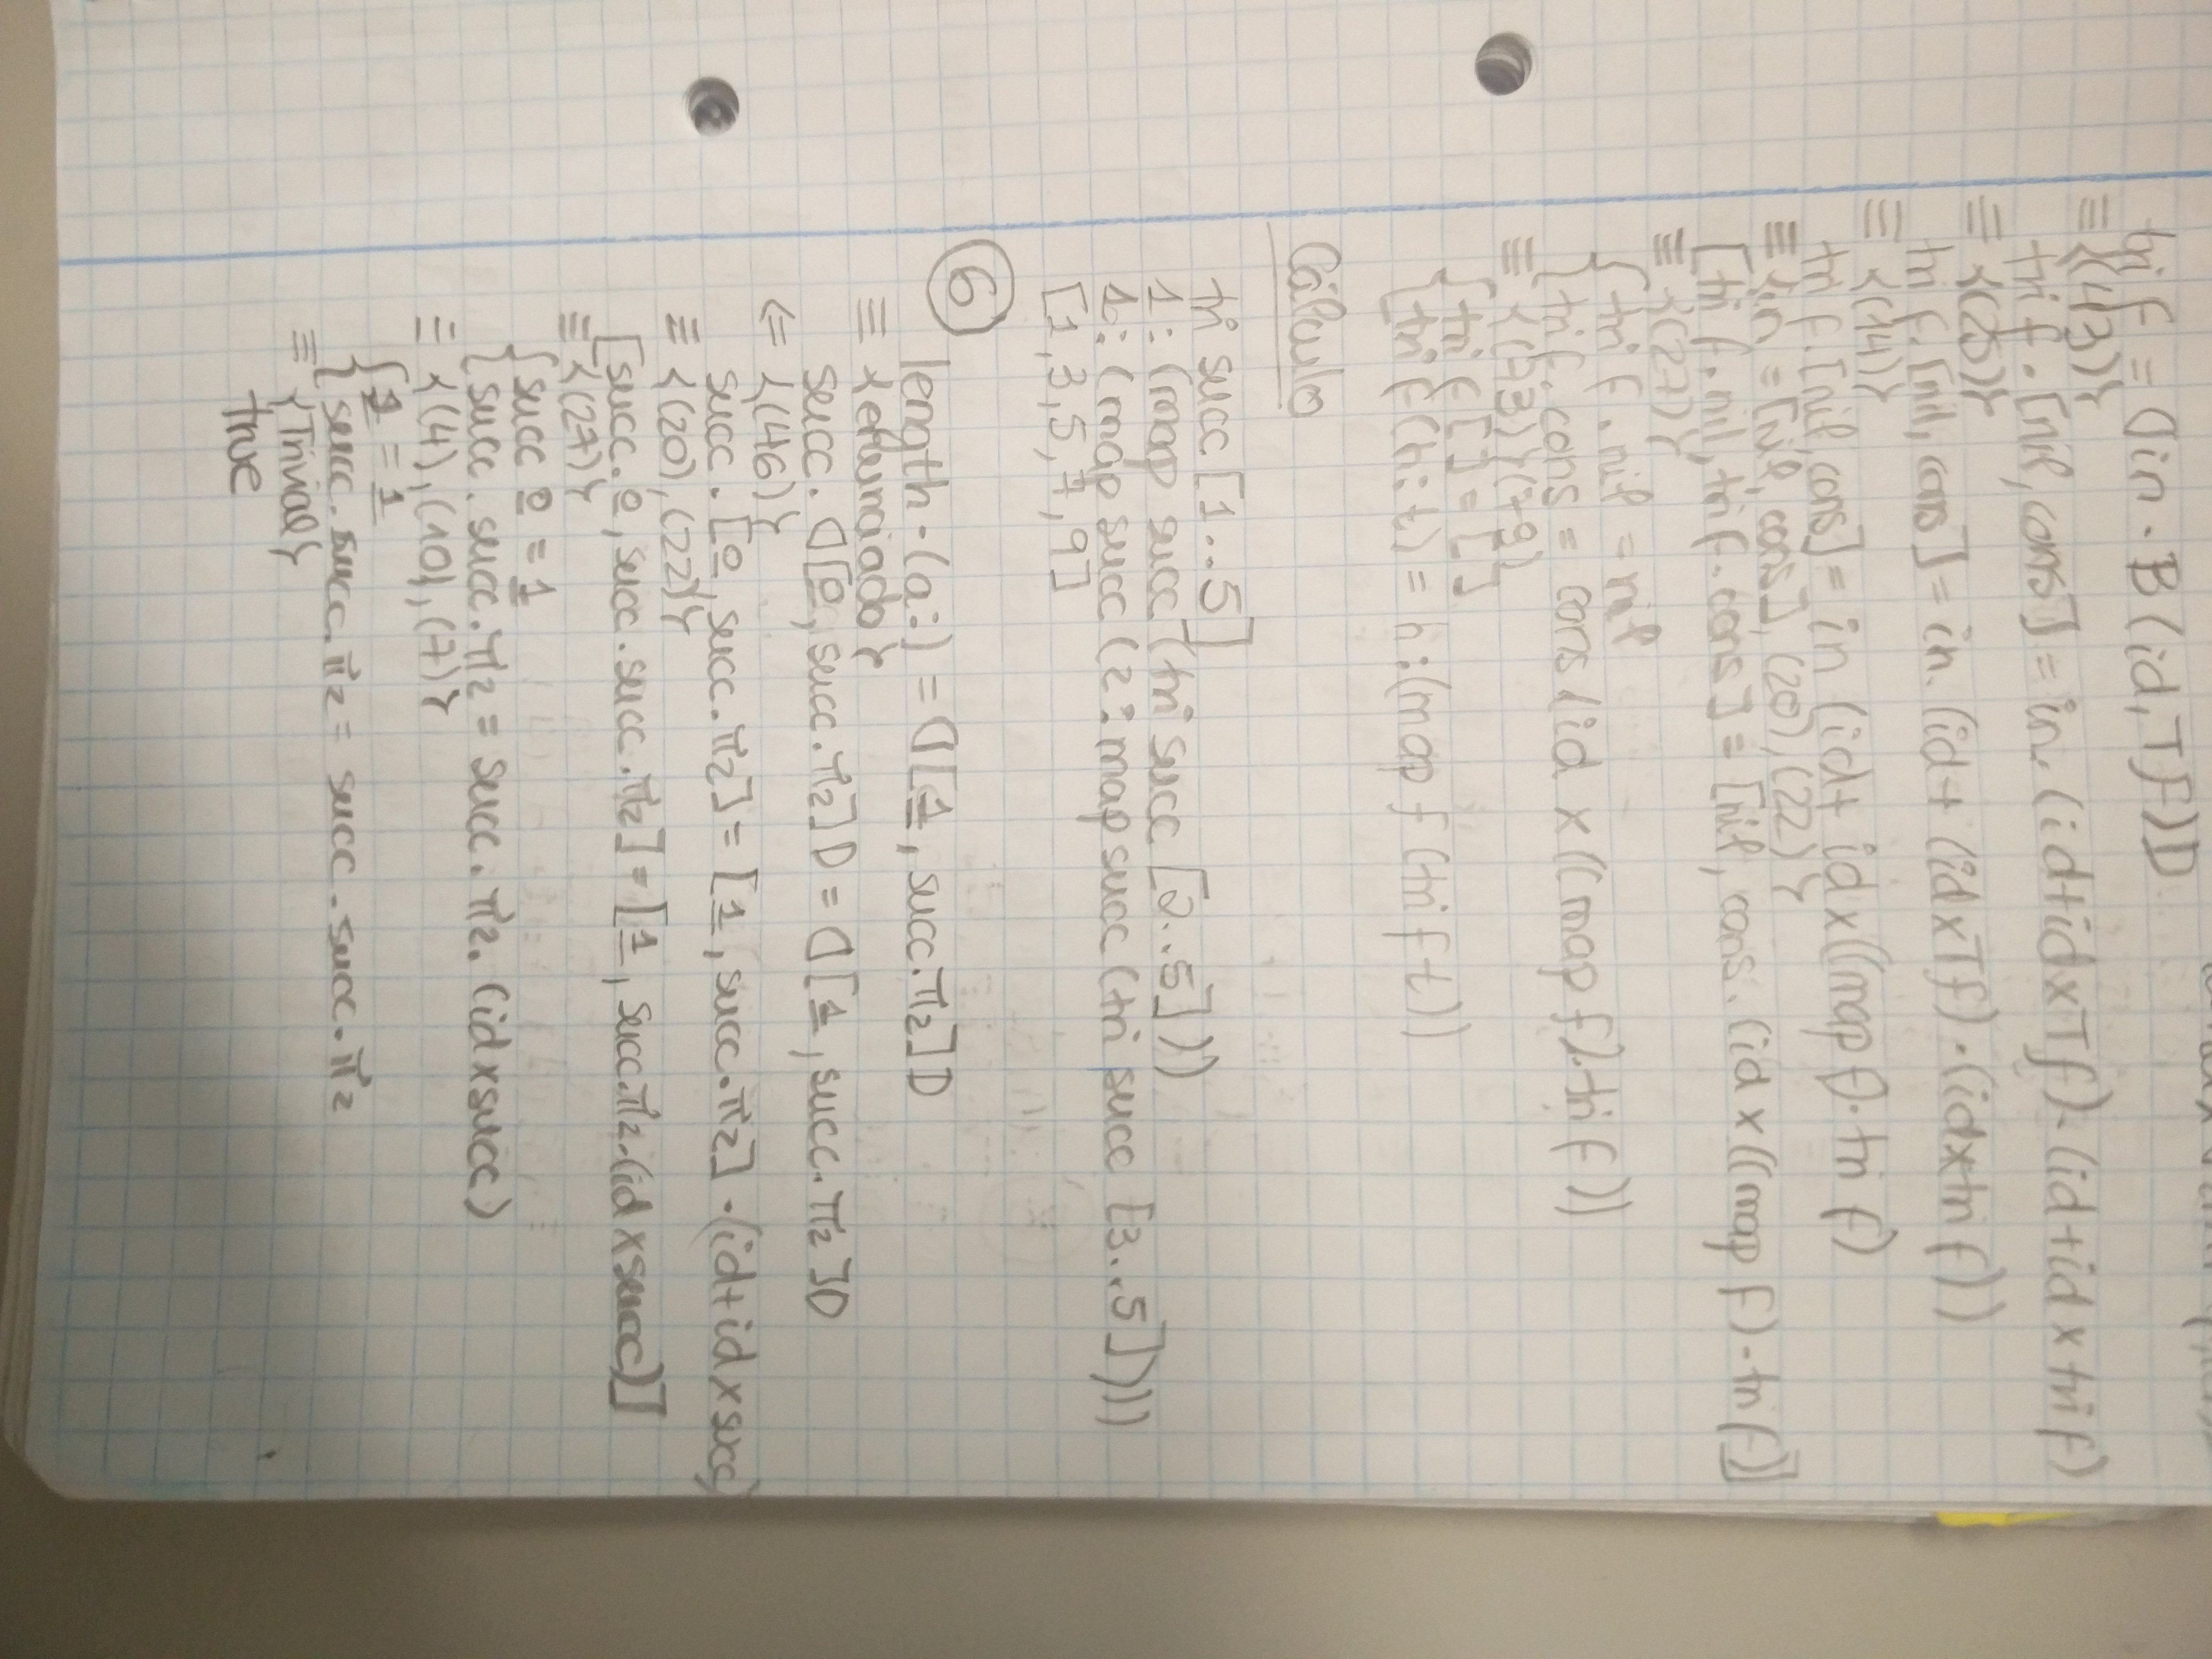 tri f = ⦇in · B(id, Tf)⦈
≡ {(43)}
tri f · [nil, cons] = in · (id+id×Tf) · (id+id×tri f)
≡ {(25)}
tri f · [nil, cons] = in · (id+ (id×Tf) · (id×tri f))
≡ {(14)}
tri f · [nil, cons] = in (id+ id×((map f) · tri f)
≡ {in = [nil, cons], (20), (22)}
[tri f · nil, tri f · cons] = [nil, cons · (id×((map f) · tri f)]
≡ {(27)}
{ tri f · nil = nil
{ tri f · cons = cons · (id × ((map f) · tri f))
≡ {(73)} (79)
{ tri f [] = []
{ tri f (h:t) = h:(map f (tri f t))
Cálculo
tri succ [1..5]
1: (map succ (tri succ [2..5]))
1: (map succ (2: map succ (tri succ [3..5])))
[1,3,5,7,9]
6
length · (a:) = ⦇[1̲, succ · π2]⦈
≡ {enunciado}
succ · ⦇[0̲, succ · π2]⦈ = ⦇[1̲, succ · π2]⦈
⇐ {(46)}
succ · [0̲, succ · π2] = [1̲, succ · π2] · (id+id×succ)
≡ {(20), (22)}
[succ · 0̲, succ · succ · π2] = [1̲, succ · π2 · (id×succ)]
≡ {(27)}
{ succ 0̲ = 1̲
{ succ · succ · π2 = succ · π2 · (id×succ)
≡ {(4), (10), (7)}
{ 1̲ = 1̲
{ succ · succ · π2 = succ · succ · π2
≡ {Trivial}
true